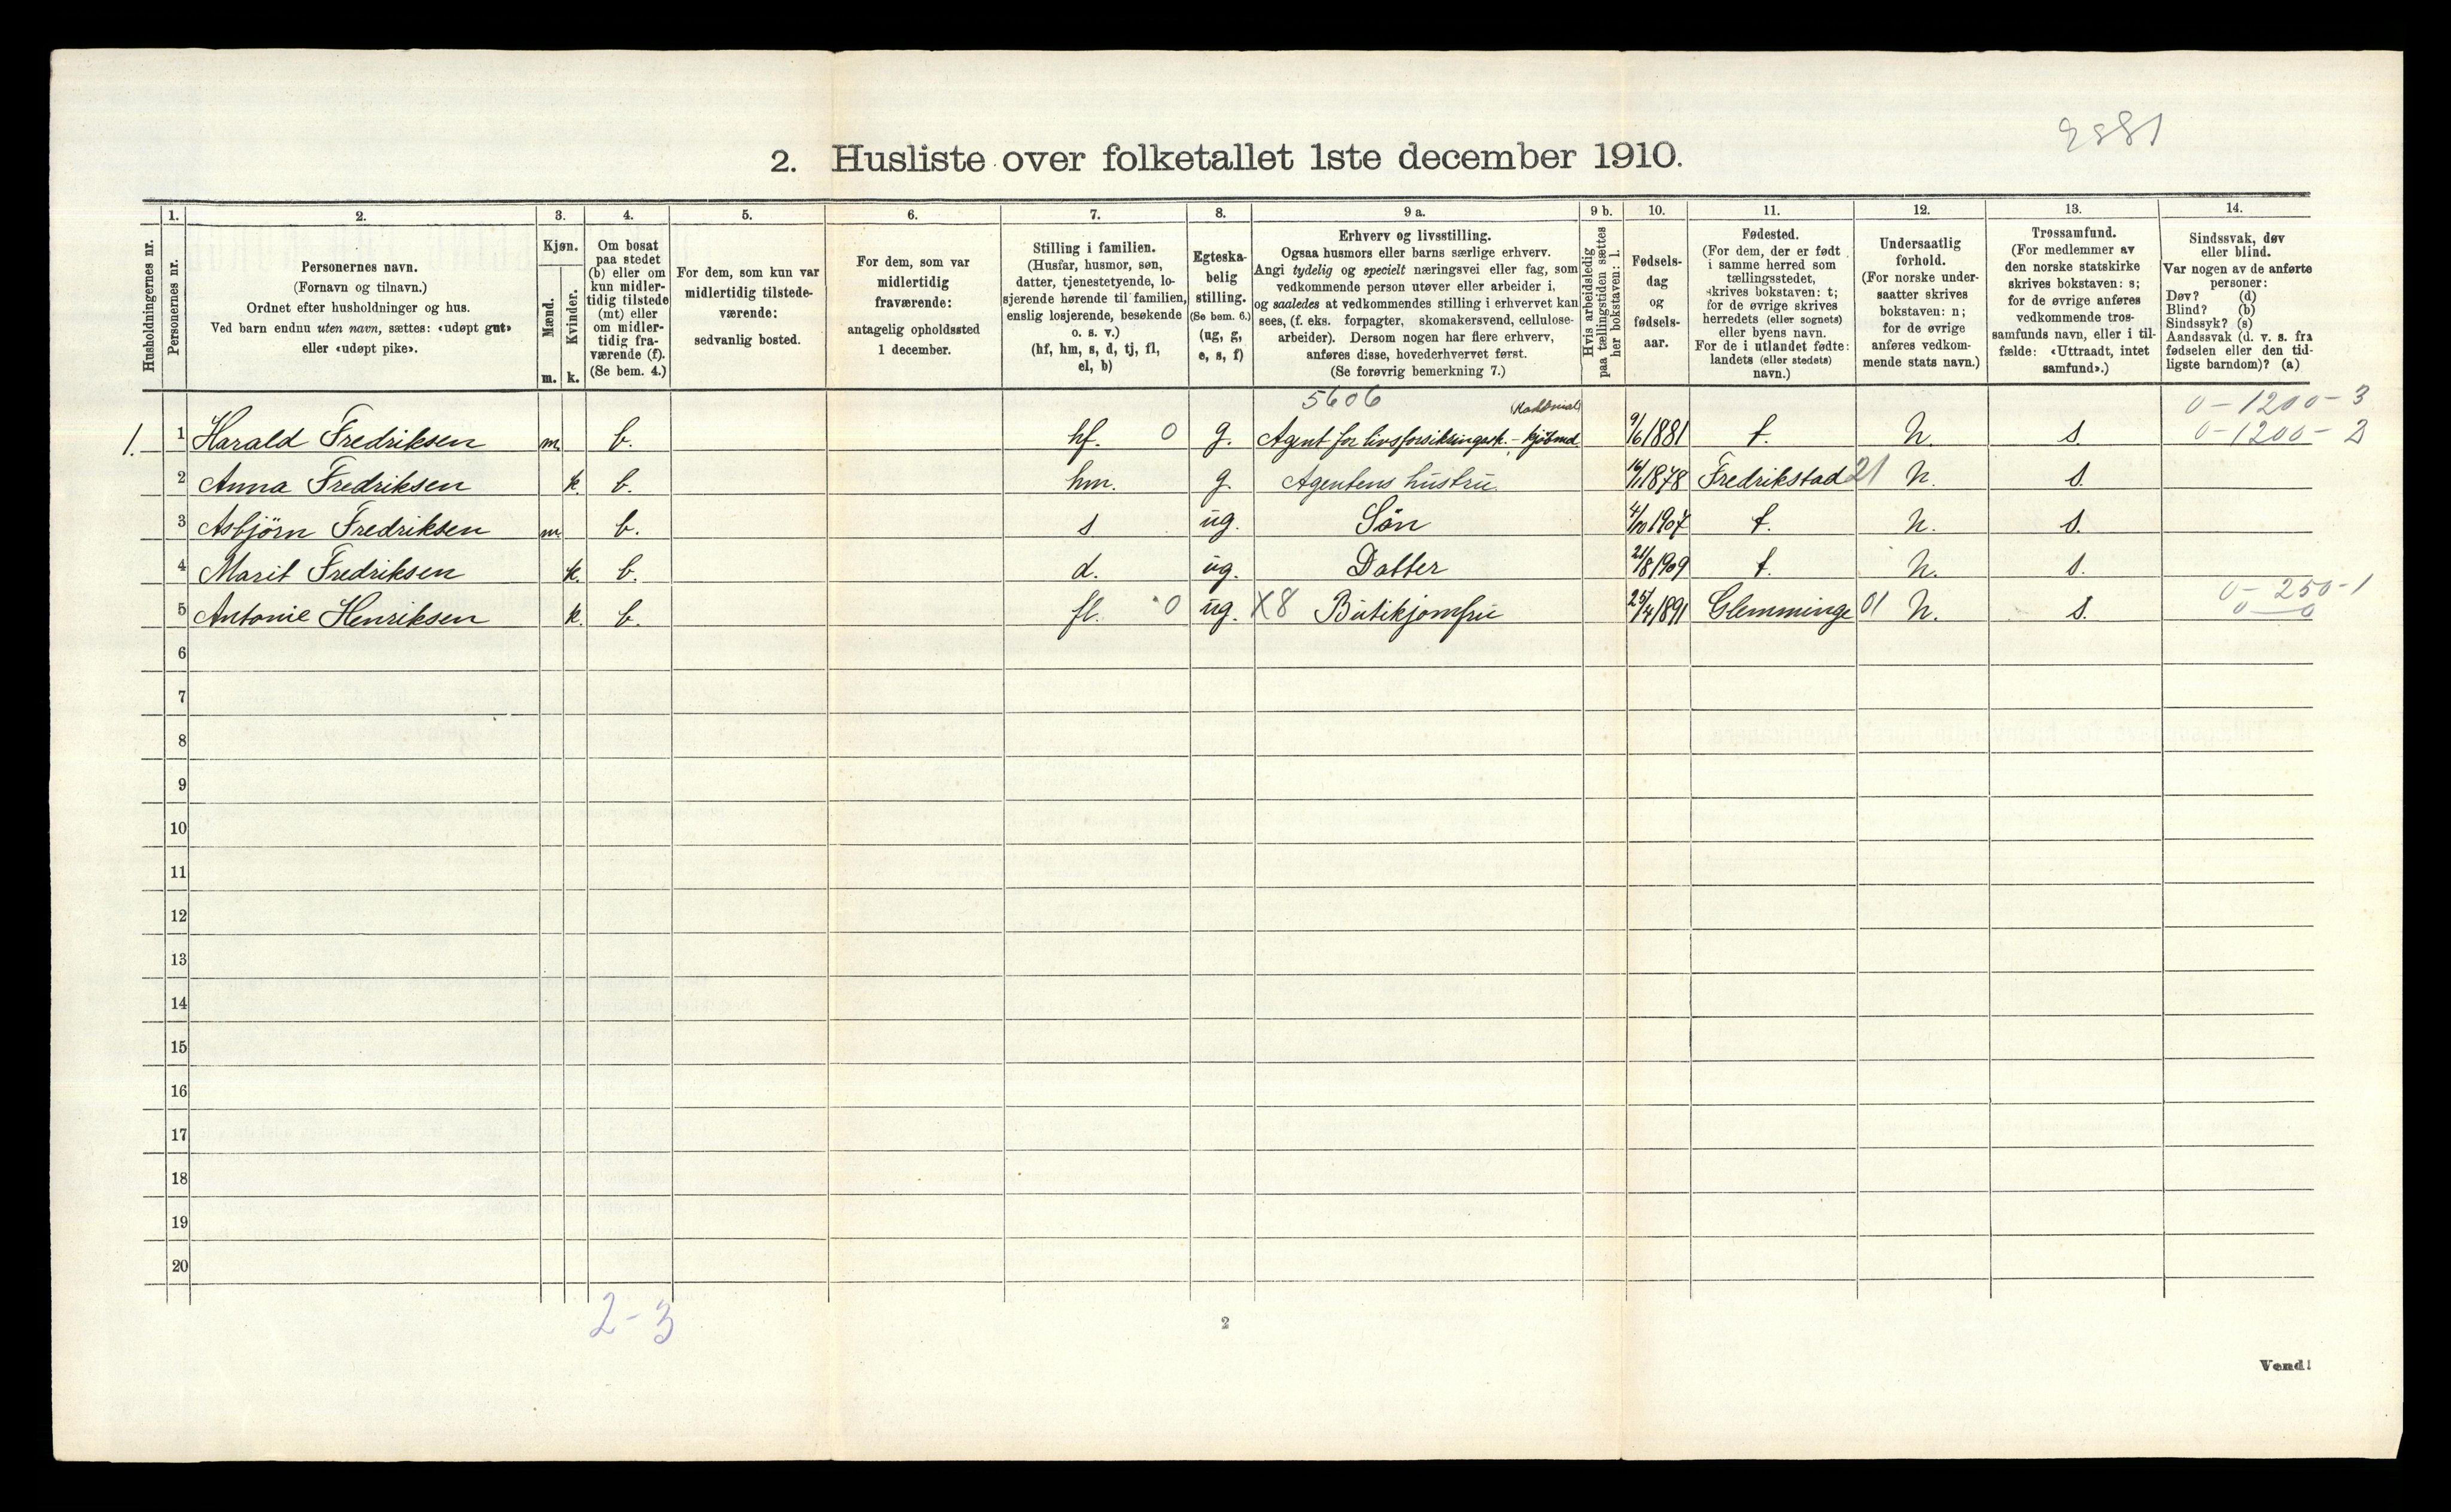 2881
2. Husliste over folketallet 1ste december 1910.
Husholdningernes nr.
1.
Personernes nr.
2.
Personernes navn.
(Fornavn og tilnavn.)
Ordnet efter husholdninger og hus.
Ved barn endnu uten navn, sættes: «udøpt gut»
eller «udøpt pike».
3.
Kjøn.
Mænd.
m.
Kvinder.
k.
4.
Om bosat
paa stedet
(b) eller om
kun midler-
tidig tilstede
(mt) eller
om midler-
tidig fra-
værende (f).
(Se bem. 4.)
5.
For dem, som kun var
midlertidig tilstede-
værende:
sedvanlig bosted.
6.
For dem, som var
midlertidig
fraværende:
antagelig opholdssted
1 december.
7.
Stilling i familien.
(Husfar, husmor, søn,
datter, tjenestetyende, lo-
sjerende hørende til familien,
enslig losjerende, besøkende
o. s. v.)
(hf, hm, s, d, tj, fl,
el, b)
8.
Egteska-
belig
stilling.
(Se bem. 6.)
(ug, g,
e, s, f)
9 a.
Erhverv og livsstilling.
Ogsaa husmors eller barns særlige erhverv.
Angi tydelig og specielt næringsvei eller fag, som
vedkommende person utøver eller arbeider i,
og saaledes at vedkommendes stilling i erhvervet kan
sees, (f. eks. forpagter, skomakersvend, cellulose-
arbeider). Dersom nogen har flere erhverv,
anføres disse, hovederhvervet først.
(Se forøvrig bemerkning 7.)
9 b.
Hvis arbeidsledig
paa tællingstiden sættes
her bokstaven: l.
10.
Fødsels-
dag
og
fødsels-
aar.
11.
Fødested.
(For dem, der er født
i samme herred som
tællingsstedet,
skrives bokstaven: t;
for de øvrige skrives
herredets (eller sognets)
eller byens navn.
For de i utlandet fødte:
landets (eller stedets)
navn.)
12.
Undersaatlig
forhold.
(For norske under-
saatter skrives
bokstaven: n;
for de øvrige
anføres vedkom-
mende stats navn.)
13.
Trossamfund.
(For medlemmer av
den norske statskirke
skrives bokstaven: s;
for de øvrige anføres
vedkommende tros-
samfunds navn, eller i til-
fælde: «Uttraadt, intet
samfund».)
14.
Sindssvak, døv
eller blind.
Var nogen av de anførte
personer:
Døv? (d)
Blind? (b)
Sindssyk? (s)
Aandssvak (d. v. s. fra
fødselen eller den tid-
ligste barndom)? (a)
5606 0-1200-3
1. 1 Harald Fredriksen m. b. hf. 0 g. Agent for livsforsikringss. - kjöbmd 9/6 1881 t. N. s. 0-1200-3
2 Anna Fredriksen k. b. hm. g. Agentens hustru 16/1 1878 Fredrikstad 21 N. s.
3 Asbjörn Fredriksen m. b. s ug. Sön 4/10 1907 t. N. s.
4 Marit Fredriksen k. b. d. ug. Datter 21/8 1909 t. N. s.
0-250-1
5 Antonie Henriksen k. b. fl. 0 ug. X8 Butikjomfru 25/4 1891 Glemminge 01 N. s. 0-0
6
7
8
9
10
11
12
13
14
15
16
17
18
19
20
2-3
2
Vend!